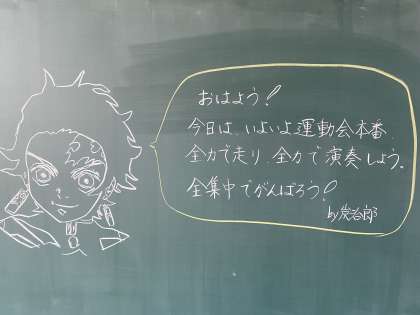 おはよう!
今日は、いよいよ運動会本番。
全力で走り、全力で演奏しよう。
全集中でがんばろう!
by炭治郎